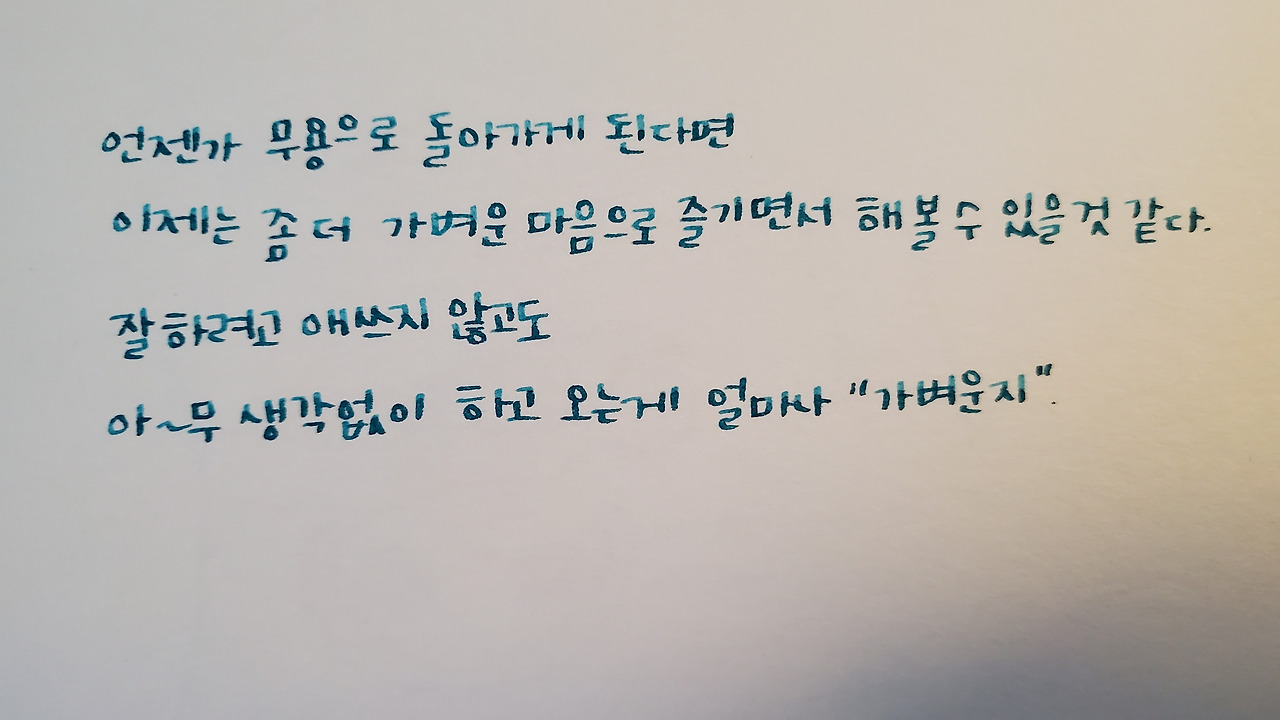 언젠가 무용으로 돌아가게 된다면
이제는 좀 더 가벼운 마음으로 즐기면서 해볼 수 있을 것 같다.
잘하려고 애쓰지 않고도
아~무 생각없이 하고 오는게 얼마나 "가벼운지".